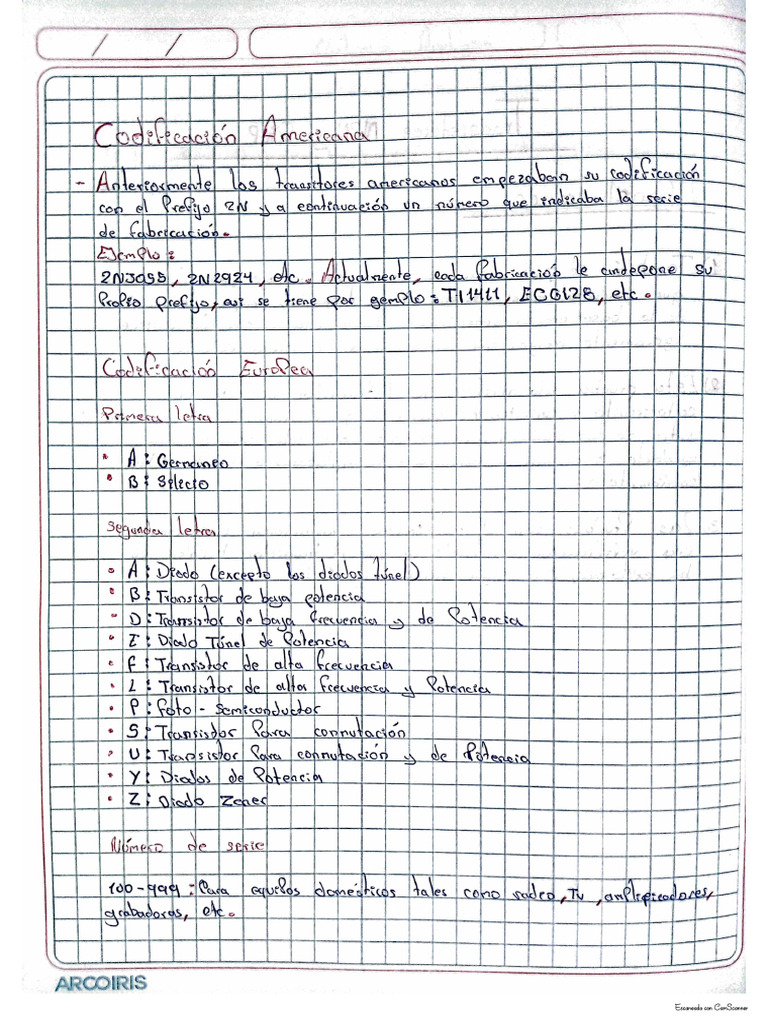 / /
Codificación Americana
- Anteriormente los transitores americanos empezaban su codificación
con el Prefijo 2N y a continuación un número que indicaba la serie
de fabricación.
Ejemplo:
2N3055, 2N2924, etc. Actualmente, cada fabricación le andepone su
Propio prefijo, asi se tiene por gemplo: TI1411, ECG128, etc.
Codificación Europea
Primera letra
• A: Germaneo
• B: Selecio
Segunda letra
• A: Diodo (excepto los diodos túnel)
• B: Transistor de baja potencia
• D: Transistor de baja frecuencia y de Potencia
• E: Diodo Túnel de Potencia
• F: Transistor de alta frecuencia
• L: Transistor de alta frecuencia y Potencia
• P: Foto - Semiconductor
• S: Transistor Para conmutación
• U: Transistor Para conmutación y de Potencia
• Y: Diodos de Potencia
• Z: Diodo Zener
Número de serie
100-999: Para equipos domésticos tales como radio, Tv, amplificadores,
grabadoras, etc.
ARCOIRIS
Escaneado con CamScanner